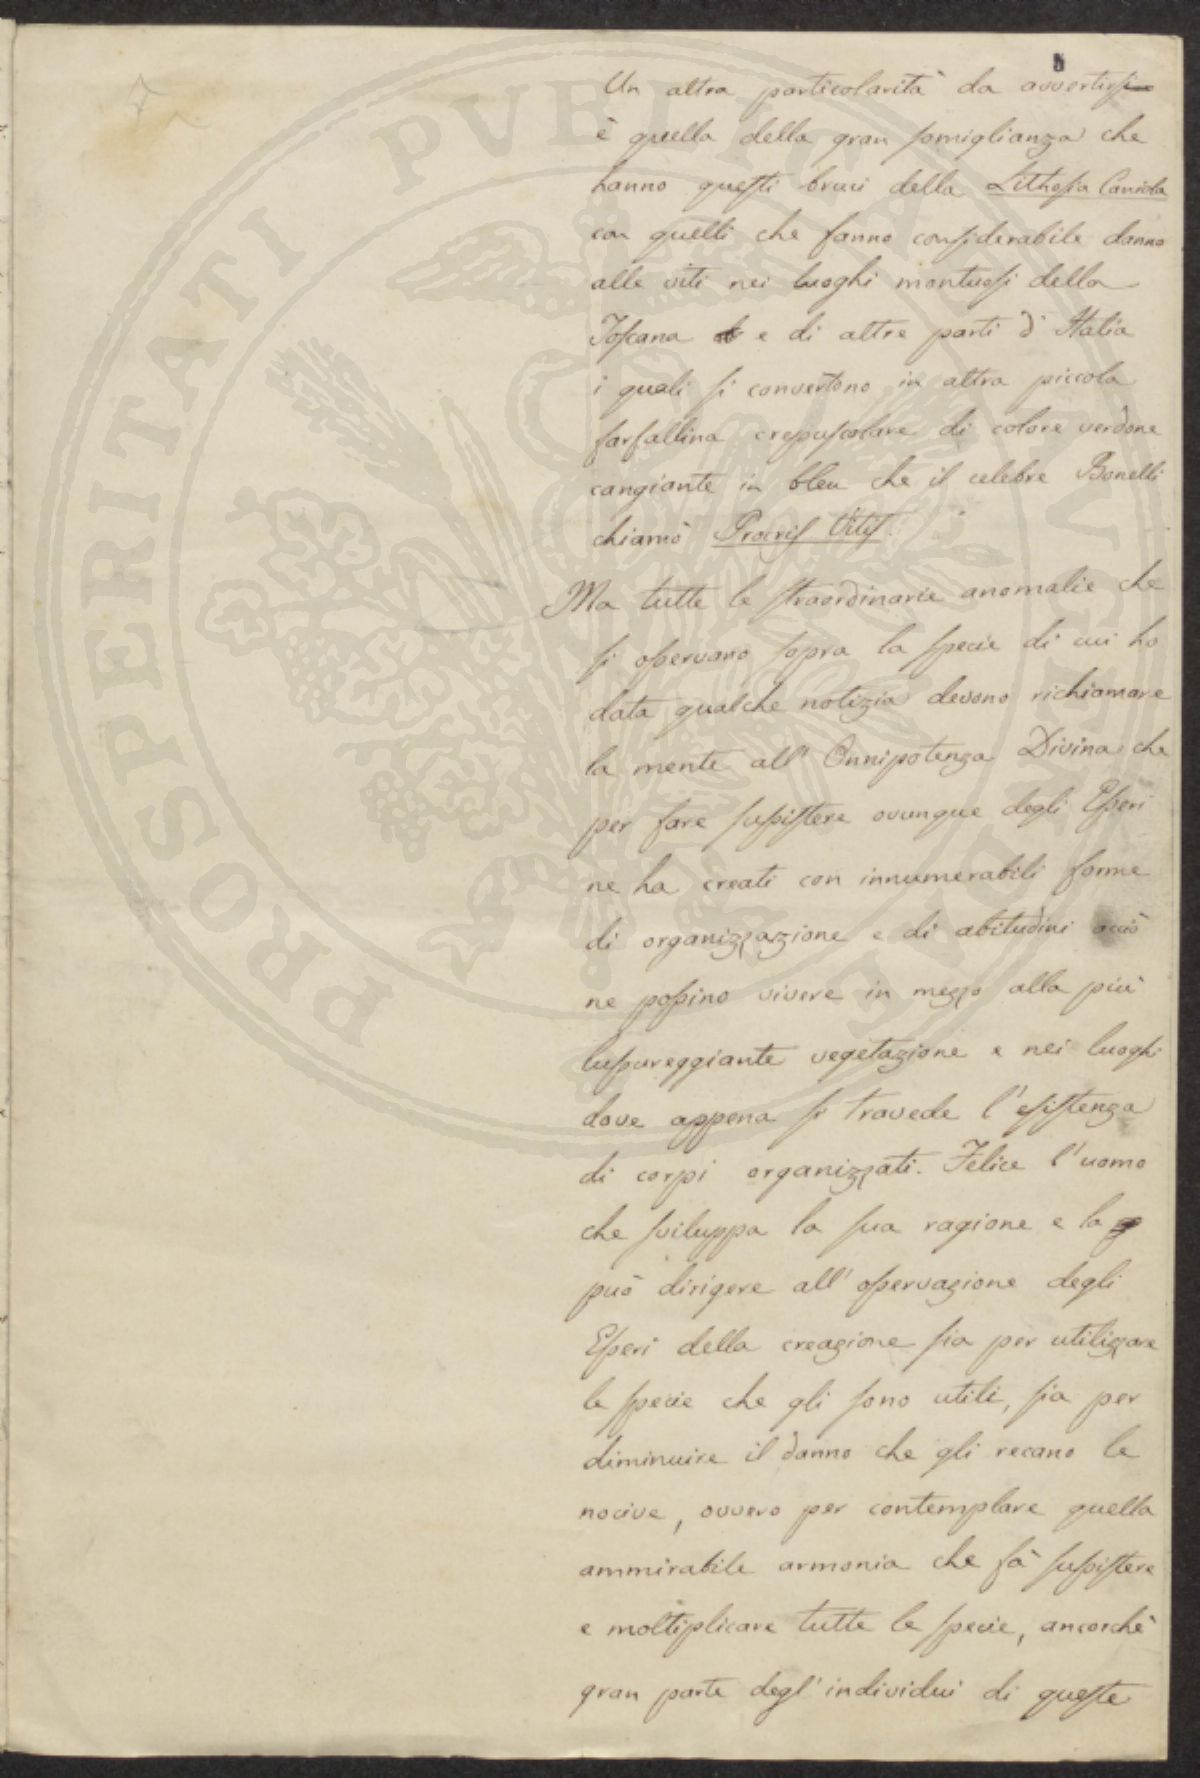 Un altra particolarità da avvertirsi
è quella della gran somiglianza che
hanno questi bruci della Lithosia Caniola
con quelli che fanno considerabile danno
alle viti nei luoghi montuosi della
Toscana e di altre parti d'Italia
i quali si convertono in altra piccola
farfallina crepuscolare di colore verdone
cangiante in bleu che il celebre Bonelli
chiamò Procris Vitis.
Ma tutte le straordinarie anomalie che
si osservano sopra la specie di cui ho
data qualche notizia devono richiamare
la mente all'Onnipotenza Divina che
per fare sussistere ovunque degli Esseri
ne ha creati con innumerabili forme
di organizzazione e di abitudini acciò
ne possino vivere in mezzo alla più
lussureggiante vegetazione e nei luoghi
dove appena si travede l'esistenza
di corpi organizzati. Felice l'uomo
che sviluppa la sua ragione e la
può dirigere all'osservazione degli
Esseri della creazione sia per utilizzare
le specie che gli sono utili, sia per
diminuire il danno che gli recano le
nocive, ovvero per contemplare quella
ammirabile armonia che fà sussistere
e moltiplicare tutte le specie, ancorchè
gran parte degl'individui di queste
PROSPERITATI PVBLICAE